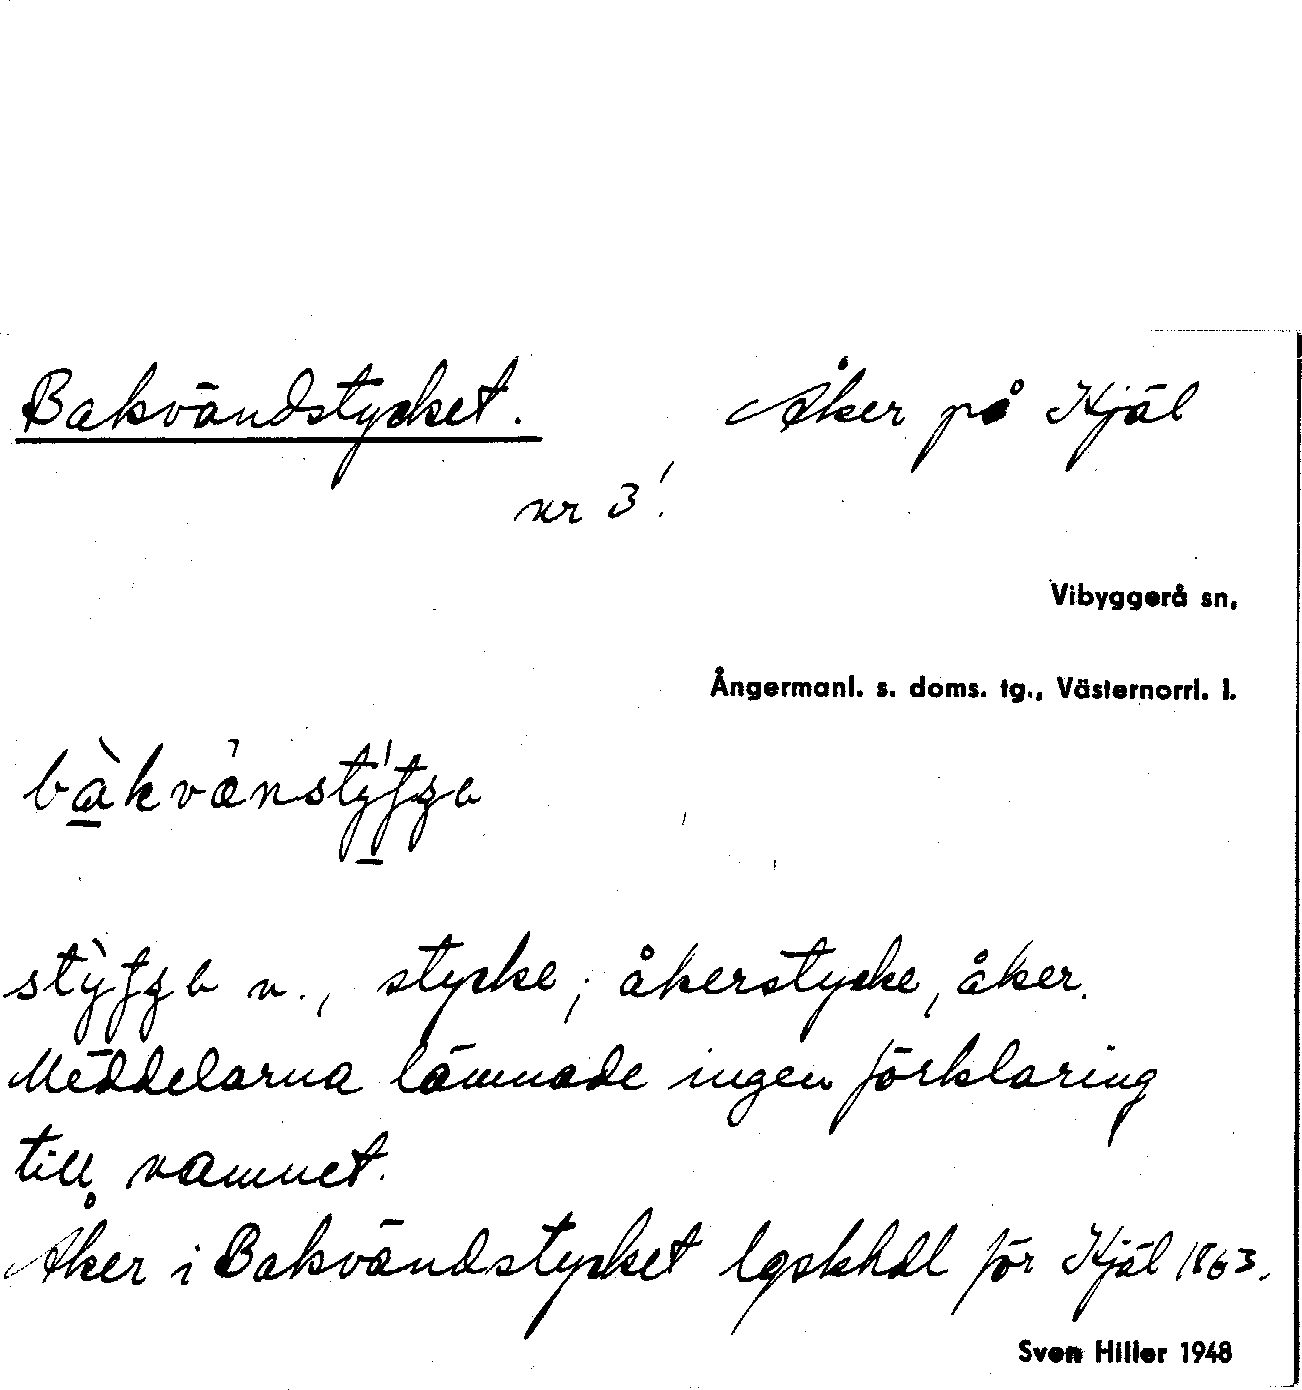 Bakvändstycket. Åker på Kjäl
nr 3!
Vibyggerå sn,
Ångermanl. s. doms. tg., Västernorrl. l.
n., stycke; åkerstycke, åker.
Meddelarna lämnade ingen förklaring
till namnet.
Åker i Bakvändstycket lgskhdl för Kjäl 1863.
Sven Hiller 1948